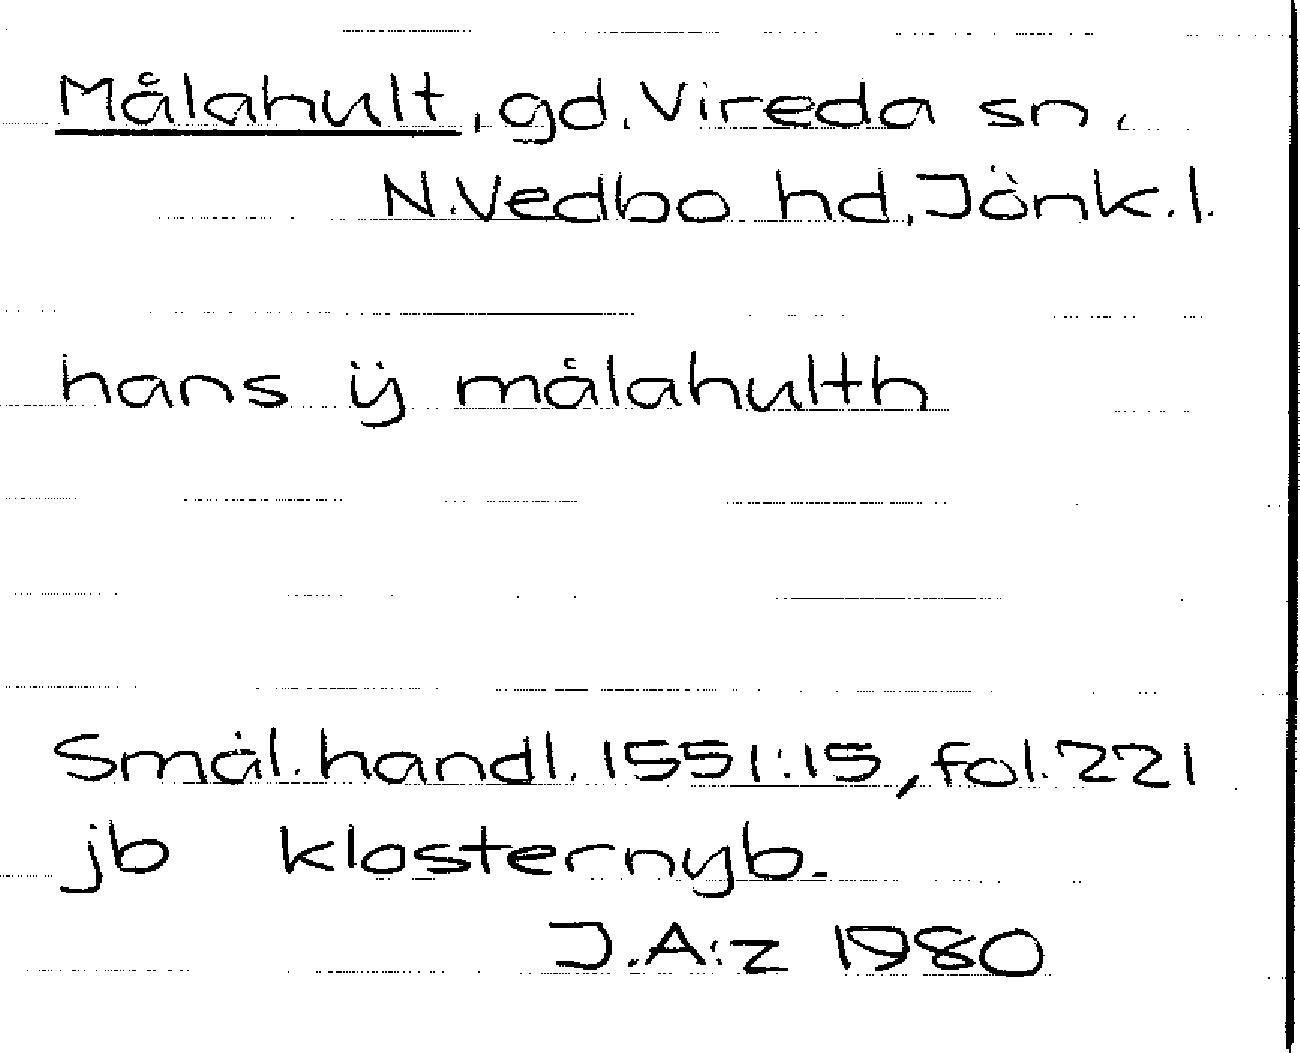 Målahult, gd. Vireda sn,
N.Vedbo hd, Jönk.l.
hans ÿ målahulth
Smål.handl. 1551:15, fol.221
jb klosternyb.
J.A:z 1980